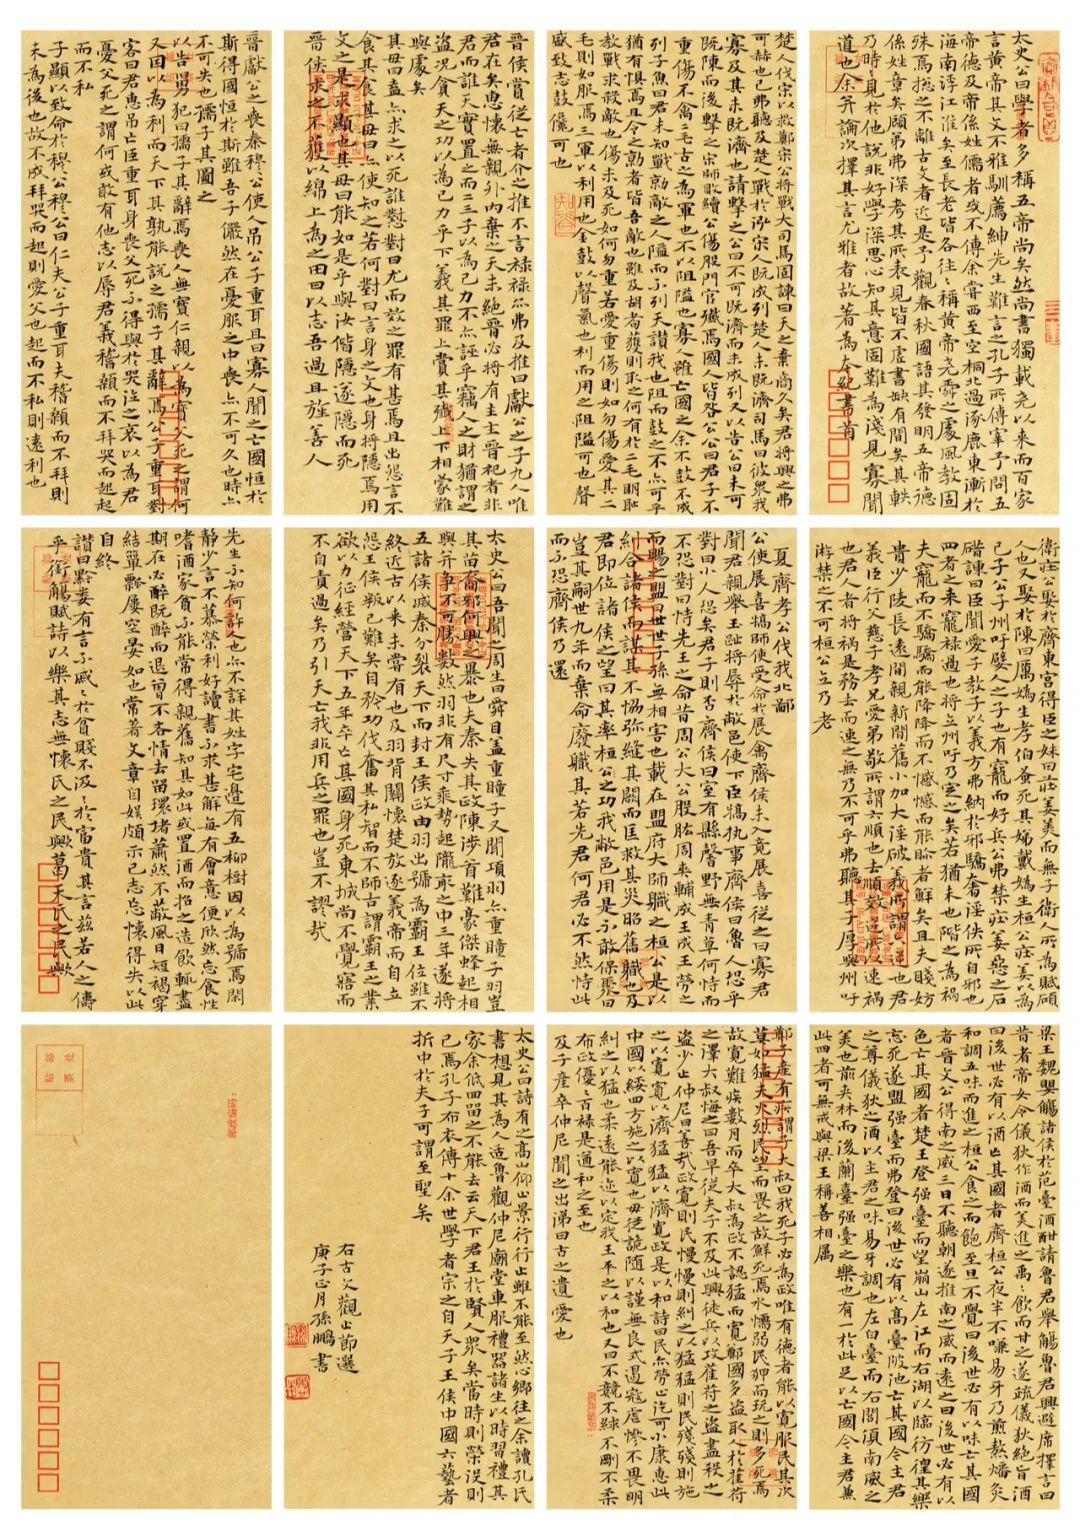 太史公曰學者多稱五帝尚矣然尚書獨載堯以來而百家
言黃帝其文不雅馴薦紳先生難言之孔子所傳宰予問五
帝德及帝係姓儒者或不傳余嘗西至空桐北過涿鹿東漸於
海南浮江淮矣至長老皆各往往稱黃帝堯舜之處風教固
殊焉總之不離古文者近是予觀春秋國語其發明五帝德
係姓章矣顧弟弗深考其所表見皆不虛書缺有間矣其軼
乃時見於他說非好學深思心知其意固難為淺見寡聞
道也余并論次擇其言尤雅者故著為本紀書首
楚人伐宋以救鄭宋公將戰大司馬固諫曰天之棄商久矣君將興之弗
可赦也已弗聽及楚人戰於泓宋人既成列楚人未既濟司馬曰彼衆我
寡及其未既濟也請擊之公曰不可既濟而未成列又以告公曰未可
既陳而後擊之宋師敗績公傷股門官殲焉國人皆咎公公曰君子不
重傷不禽二毛古之為軍也不以阻隘也寡人雖亡國之余不鼓不成
列子魚曰君未知戰勍敵之人隘而不列天讚我也阻而鼓之不亦可乎
猶有懼焉且今之勍者皆吾敵也雖及胡耇獲則取之何有於二毛明恥
教戰求殺敵也傷未及死如何勿重若愛重傷則如勿傷愛其二
毛則如服焉三軍以利用也金鼓以聲氣也利而用之阻隘可也聲
盛致志鼓儳可也
晉侯賞從亡者介之推不言祿祿亦弗及推曰獻公之子九人唯
君在矣惠懷無親外內棄之天未絕晉必將有主主晉祀者非
君而誰天實置之而二三子以為己力不亦誣乎竊人之財猶謂之
盜況貪天之功以為己力乎下義其罪上賞其上下相蒙難
與處矣
其母曰盍亦求之以死誰懟對曰尤而效之罪有甚焉且出怨言不
食其食其母曰亦使知之若何對曰言身之文也身將隱焉用
文之是求顯也其母曰能如是乎與汝偕隱遂隱而死
晉侯求之不獲以綿上為之田曰以志吾過且旌善人
晉獻公之喪秦穆公使人吊公子重耳且曰寡人聞之亡國恒於
斯得國恒於斯雖吾子儼然在憂服之中喪亦不可久也時亦
不可失也孺子其圖之
以告舅犯曰孺子其辭焉喪人無寶仁親以為寶父死之謂何
又因以為利而天下其孰能說之孺子其辭焉公子重耳對
客曰君惠吊亡臣重耳身喪父死不得與於哭泣之哀以為君
憂父死之謂何或敢有他志以辱君義稽顙而不拜哭而起起
而不私
子顯以致命於穆公穆公曰仁夫公子重耳夫稽顙而不拜則
未為後也故不成拜哭而起則愛父也起而不私則遠利也
衛莊公娶於齊東宮得臣之妹曰莊姜美而無子衛人所為賦碩
人也又娶於陳曰厲媯生孝伯蚤死其娣戴媯生桓公莊姜以為
己子公子州吁嬖人之子也有寵而好兵公弗禁莊姜惡之石
碏諫曰臣聞愛子教子以義方弗納於邪驕奢淫佚所自邪也
四者之來寵祿過也將立州吁乃定之矣若猶未也階之為禍
夫寵而不驕驕而能降降而不憾憾而能眕者鮮矣且夫賤妨
貴少陵長遠間親新間舊小加大淫破義所謂六逆也君
義臣行父慈子孝兄愛弟敬所謂六順也去順效逆所以速禍
也君人者將禍是務去而速之無乃不可乎弗聽其子厚與州吁
游禁之不可桓公立乃老
夏齊孝公伐我北鄙
公使展喜犒師使受命於展禽齊侯未入竟展喜從之曰寡君
聞君親舉玉趾將辱於敝邑使下臣犒執事齊侯曰魯人恐乎
對曰小人恐矣君子則否齊侯曰室有縣罄野無青草何恃而
不恐對曰恃先王之命昔周公大公股肱周室夾輔成王成王勞之
而賜之盟曰世世子孫無相害也載在盟府大師職之桓公是以
糾合諸侯而謀其不協彌縫其闕而匡救其災昭舊職也及
君即位諸侯之望曰其率桓公之功我敝邑用是不敢保聚曰
豈其嗣世九年而棄命廢職其若先君何君必不然恃此
而不恐齊侯乃還
太史公曰吾聞之周生曰舜目蓋重瞳子又聞項羽亦重瞳子羽豈
其苗裔邪何興之暴也夫秦失其政陳涉首難豪傑蜂起相
與并爭不可勝數然羽非有尺寸乘勢起隴畝之中三年遂將
五諸侯滅秦分裂天下而封王侯政由羽出號為霸王位雖不
終近古以來未嘗有也及羽背關懷楚放逐義帝而自立
怨王侯叛己難矣自矜功伐奮其私智而不師古謂霸王之業
欲以力征經營天下五年卒亡其國身死東城尚不覺寤而
不自責過矣乃引天亡我非用兵之罪也豈不謬哉
先生不知何許人也亦不詳其姓字宅邊有五柳樹因以為號焉閑
靜少言不慕榮利好讀書不求甚解每有會意便欣然忘食性
嗜酒家貧不能常得親舊知其如此或置酒而招之造飲輒盡
期在必醉既醉而退曾不吝情去留環堵蕭然不蔽風日短褐穿
結簞瓢屢空晏如也常著文章自娛頗示己志忘懷得失以此
自終
讚曰黔婁有言不戚戚於貧賤不汲汲於富貴其言茲若人之儔
乎銜觴賦詩以樂其志無懷氏之民歟葛天氏之民歟
梁王魏嬰觴諸侯於范臺酒酣請魯君舉觴魯君興避席擇言曰
昔者帝女令儀狄作酒而美進之禹禹飲而甘之遂疏儀狄絕旨酒
曰後世必有以酒亡其國者齊桓公夜半不嗛易牙乃煎熬燔炙
和調五味而進之桓公食之而飽至旦不覺曰後世必有以味亡其國
者晉文公得南之威三日不聽朝遂推南之威而遠之曰後世必有以
色亡其國者楚王登強臺而望崩山左江而右湖以臨彷徨其樂
忘死遂盟強臺而弗登曰後世必有以高臺陂池亡其國者今主君
之尊儀狄之酒也主君之味易牙調也左白臺而右閭須南威之
美也前夾林而後蘭臺強臺之樂也有一於此足以亡國今主君兼
此四者可無戒與梁王稱善相屬
鄭子產有疾謂子大叔曰我死子必為政唯有德者能以寬服民其次
莫如猛夫火烈民望而畏之故鮮死焉水懦弱民狎而玩之則多死焉
故寬難疾數月而卒大叔為政不忍猛而寬鄭國多盜取人於萑苻
之澤大叔悔之曰吾早從夫子不及此興徒兵以攻萑苻之盜盡殺之
盜少止仲尼曰善哉政寬則民慢慢則糾之以猛猛則民殘殘則施
之以寬寬以濟猛猛以濟寬政是以和詩曰民亦勞止汔可小康惠此
中國以綏四方施之以寬也毋從詭隨以謹無良式遏寇虐慘不畏明
糾之以猛也柔遠能邇以定我王平之以和也又曰不競不絿不剛不柔
布政優優百祿是遒和之至也
及子產卒仲尼聞之出涕曰古之遺愛也
太史公曰詩有之高山仰止景行行止雖不能至然心鄉往之余讀孔氏
書想見其為人適魯觀仲尼廟堂車服禮器諸生以時習禮其
家余低回留之不能去云天下君王於賢人衆矣當時則榮沒則
已焉孔子布衣傳十余世學者宗之自天子王侯中國六藝者
折中於夫子可謂至聖矣
右古文觀止節選
庚子正月孫鵬書